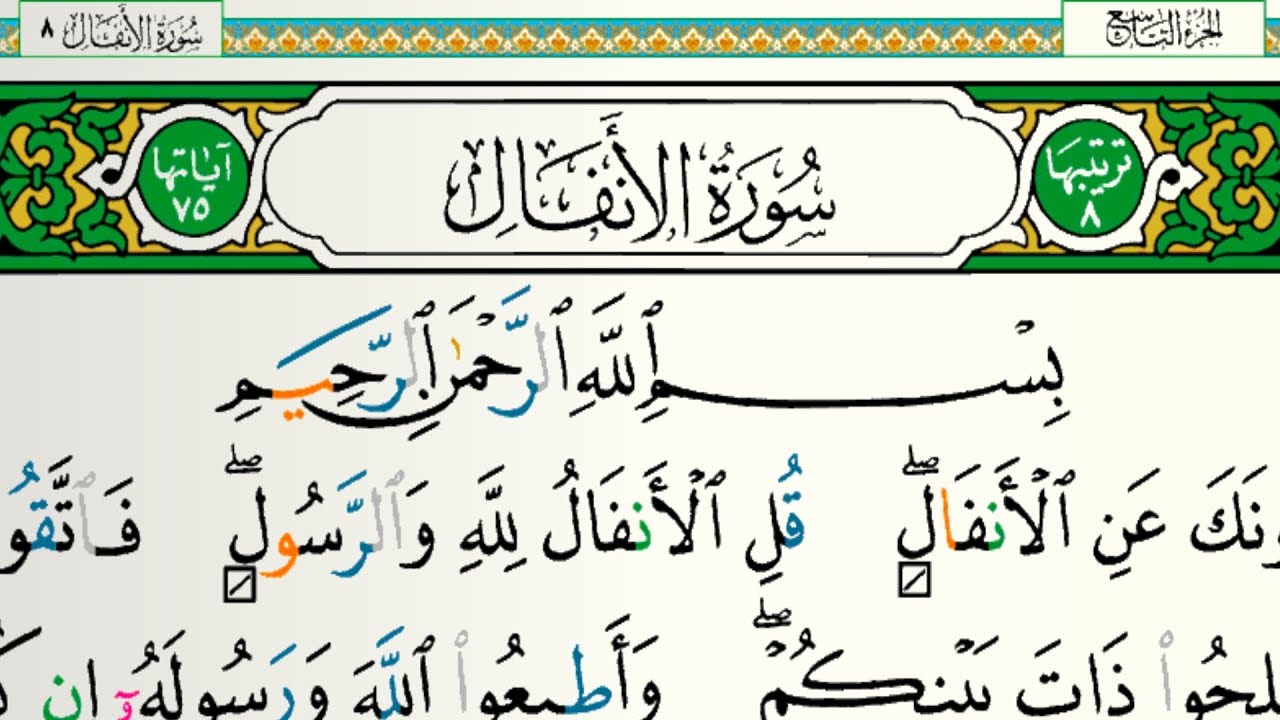 الجزء التاسع
سُورَةُ الأَنفَالِ ٨
ترتيبها ٨
سُورَةُ الأَنفَالِ
آياتها ٧٥
بِسْمِ ٱللَّهِ ٱلرَّحْمَٰنِ ٱلرَّحِيمِ
عَنِ ٱلْأَنفَالِۖ قُلِ ٱلْأَنفَالُ لِلَّهِ وَٱلرَّسُولِۖ
ذَاتَ بَيْنِكُمْۖ وَأَطِيعُوا۟ ٱللَّهَ وَرَسُولَهُۥٓ إِن